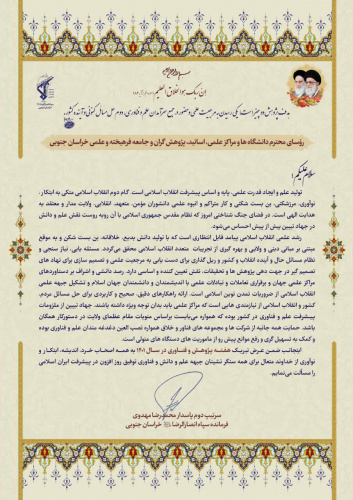 ان ربک هو الخلاق العلیم
هدف پژوهش دو چیز است: یکی رسیدن به مرجعیت علمی و حضور در جمع سرآمدان علم و فناوری، دوم حل مسائل کنونی و آینده کشور.
رؤسای محترم دانشگاه ها و مراکز علمی، اساتید، پژوهش گران و جامعه فرهیخته و علمی خراسان جنوبی
سلام علیکم؛
تولید علم و ایجاد قدرت علمی، پایه و اساس پیشرفت انقلاب اسلامی است. گام دوم انقلاب اسلامی متکی به ابتکار،
نوآوری، مرزشکنی، بن بست شکنی و کار متراکم و انبوه علمی دانشوران مؤمن، متعهد، انقلابی، ولایت مدار و معتقد به
هدایت الهی است. در فضای جنگ شناختی امروز که نظام مقدس جمهوری اسلامی با آن روبه روست نقش علم و دانش در
جهاد تبیین بیش از پیش احساس می‌شود.
رشد علمی انقلاب اسلامی پیامد قابل انتظاری است که با تولید دانش بدیع، خلاقانه، بن بست شکن و به موقع
مبتنی بر مبانی دینی و ولایی و بهره گیری از تجربیات متعدد انقلاب اسلامی محقق می‌گردد. مسئله یابی، نیاز سنجی و
نظام مسائل حال و آینده انقلاب و کشور و ریل گذاری برای دست یابی به مرجعیت علمی و تصمیم سازی برای نهاد های
تصمیم گیر در جهت دهی پژوهش ها و تحقیقات، نقش تعیین کننده و اساسی دارد. رصد دانشی و اشراف بر دستاوردهای
مراکز علمی جهان و برقراری تعاملات و تبادلات علمی با اندیشمندان و دانشمندان جهان اسلام و تشکیل جبهه علمی
انقلاب اسلامی از ضروریات تمدن نوین اسلامی است. ارائه راهکارهای دقیق، صحیح و کاربردی برای حل مسائل مردم،
کشور و انقلاب اسلامی از نیازمندی هایی است که مراکز علمی باید بدان توجه ویژه داشته باشند. جهاد تبیین از ملزومات
پیشرفت علم و فناوری در کشور بوده که همواره می‌بایست براساس منویات مقام عظمای ولایت در دستورکار همگان
باشد. حمایت همه جانبه از شرکت ها و مجموعه های فناور و خلاق همواره نصب العین دغدغه مندان علم و فناوری بوده
و کمک به تسهیل گری و رفع موانع پیش رو از ماموریت های دستگاه های متولی است.
اینجانب ضمن عرض تبریک هفته پژوهش و فناوری در سال ۱۴۰۱ به همه اصحاب خرد، اندیشه، ابتکار و
نوآوری از خداوند متعال برای همه سنگر نشینان جبهه علم و دانش و فناوری توفیق روز افزون در پیشرفت ایران اسلامی
را مسألت می‌نمایم.
سرتیپ دوم پاسدار محمدرضا مهدوی
فرمانده سپاه انصارالرضا خراسان جنوبی